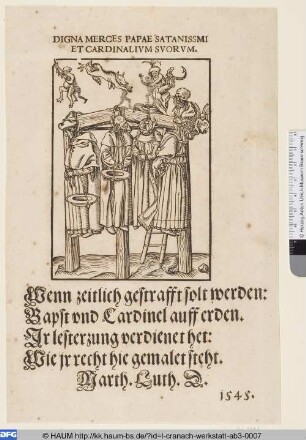 DIGNA MERCES PAPAE SATANISSMI
ET CARDINALIVM SVORVM.
Wenn zeitlich gestrafft solt werden:
Bapst vnd Cardinel auff erden.
Jr lesterzung verdienet het:
Wie jr recht hie gemalet steht.
Marth. Luth. D.
1545.
© Herzog Anton Ulrich-Museum Braunschweig
DFG
© HAUM http://kk.haum-bs.de/?id=l-cranach-werkstatt-ab3-0007